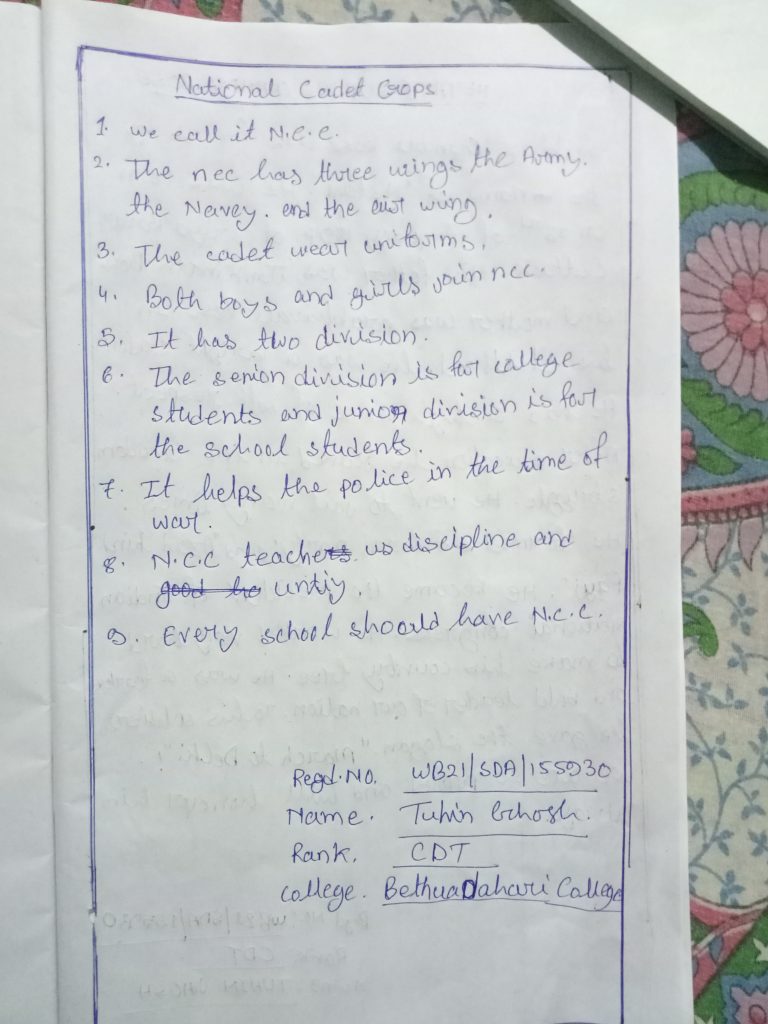 National Cadet Crops
1. we call it N.C.C.
2. The ncc has three wings the Army.
the Navey. and the air wing.
3. The cadet wear uniforms.
4. Both boys and girls join ncc.
5. It has two division.
6. The senion division is for college
students and junior division is for
the school students.
7. It helps the police in the time of
war.
8. N.C.C teachers us discipline and
good untiy.
9. Every school shoould have N.C.C.
Regd.No. WB21/SDA/155930
Name. Tuhin Ghosh.
Rank. CDT
college. BethuaDahari College